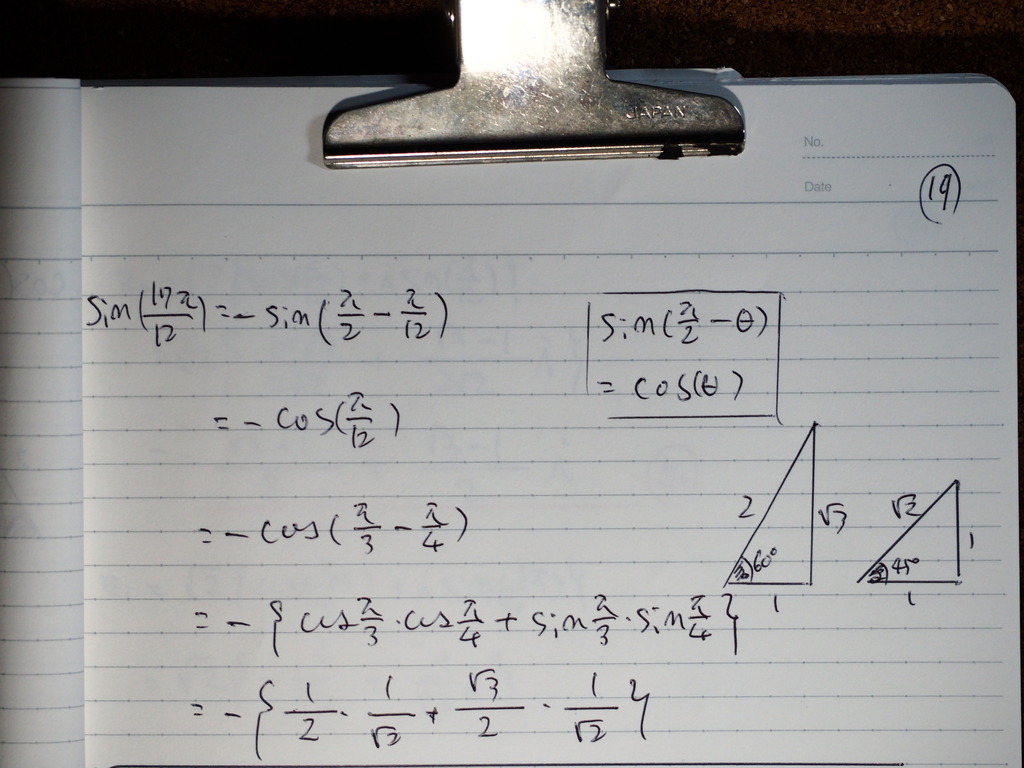 JAPAN
No.
Date
⑲
sin(17π/12) = - sin(π/2 - π/12)
sin(π/2 - θ)
= cos(θ)
= - cos(π/12)
= - cos(π/3 - π/4)
2 √3 60° 1
√2 1 45° 1
= - { cos π/3 · cos π/4 + sin π/3 · sin π/4 }
= - { 1/2 · 1/√2 + √3/2 · 1/√2 }